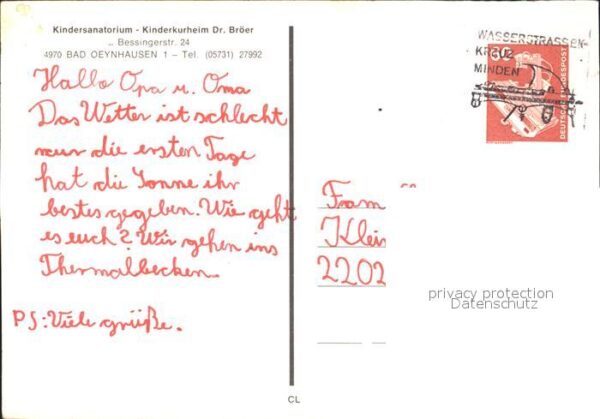 Kindersanatorium - Kinderkurheim Dr. Bröer
Bessingerstr. 24
4970 BAD OEYNHAUSEN 1 – Tel. (05731) 27992
Hallo Opa u. Oma
Das Wetter ist schlecht
nur die ersten Tage
hat die Sonne ihr
bestes gegeben. Wie geht
es euch? Wir gehen ins
Thermalbecken.
PS: Viele grüße.
CL
WASSERSTRASSEN-
KREUZ
MINDEN
DEUTSCHE BUNDESPOST
Fam
Kleis
2202
privacy protection
Datenschutz